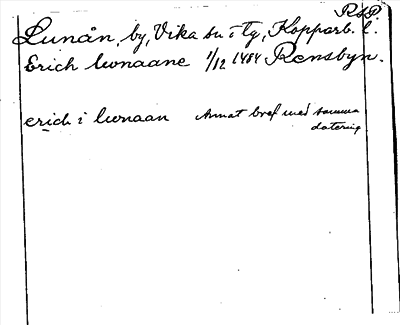 RsP
Lunån, by, Vika sn o tg, Kopparb. l.
Erich lwnaane 1/12 1484 Rensbyn.
erich i lwnaan Annat bref med samma
datering